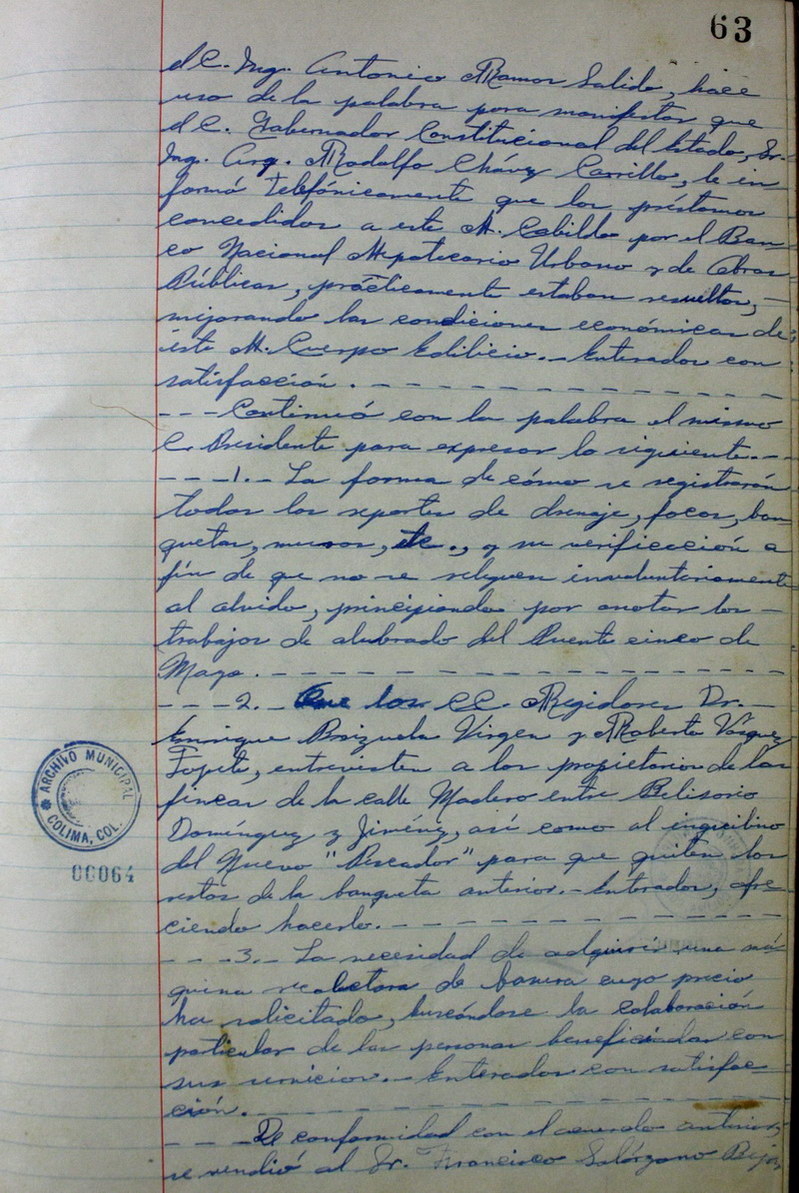 63
el C. Ing. Antonio Ramos Salido, hace
uso de la palabra para manifestar que
el C. Gobernador Constitucional del Estado, Sr.
Ing. Arq. Rodolfo Chávez Carrillo, le in
formó telefónicamente que los préstamos
concedidos a este H. Cabildo por el Ban-
co Nacional Hipotecario Urbano y de Obras
Públicas, prácticamente estaban resueltos, -
mejorando las condiciones económicas de
éste H. Cuerpo Edilicio. - Enterados con
satisfacción. - - - - - - - - - - - - - -
- - - Continuó con la palabra el mismo
C. Presidente para expresar lo siguiente. - -
- - - 1. - La forma de cómo se registrarán
todos los reportes de drenaje, focos, ban
quetas, muros, etc., y su verificación a
fín de que no se releguen involuntariamente
al olvido, principiando por anotar los -
trabajos de alubrado del Puente cinco de
Mayo. - - - - - - - - - - - - - - - -
- - - 2. - Que los CC. Regidores Dr. -
Enrique Brizuela Virgen y Roberto Vázquez
, entrevisten a los propietarios de las
fincas de la calle Madero entre Belisario
Domínguez y Jiménez, así como al inquilino
del Nuevo "Pescador" para que quiten los
restos de la banqueta anterior. - Enterados, ofre
ciendo hacerlo. - - - - - - - - - - - - -
- - - 3. - La necesidad de adquirir una má
quina recolectora de basura cuyo precio
ha solicitado, buscándose la colaboración
particular de las personas beneficiadas con
sus servicios. - Enterados con satisfac-
ción. - - - - - - - - - - - - - - - - -
- - - De conformidad con el acuerdo anterior,
se vendió al Sr. Francisco Solórzano
ARCHIVO MUNICIPAL
COLIMA, COL.
00064